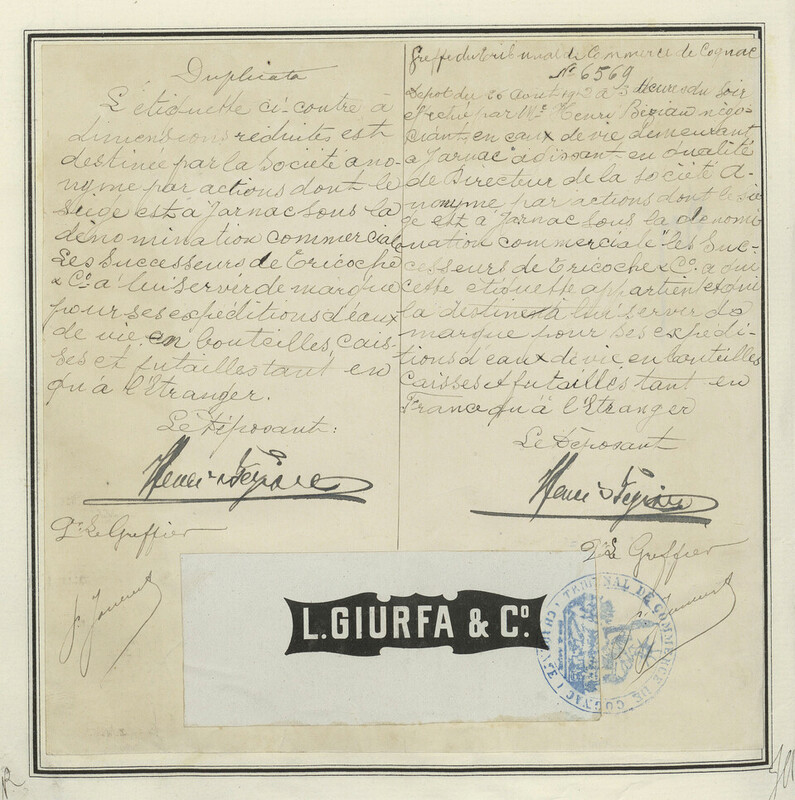 Duplicata
L'étiquette ci-contre à
dimensions réduites est
destinée par la Société ano-
nyme par actions dont le
Siège est à Jarnac sous la
dénomination commerciale
Les Successeurs de Tricoche
& Co. à lui servir de marque
pour ses expéditions d'eaux
de vie en bouteilles, cais-
ses et futailles tant en
qu'à l'Etranger.
Le Déposant:
Pr. Le Greffier
Greffe du tribunal de Commerce de Cognac
No. 6569
Dépot du 26 Aout 1912 à 3 Heures du soir
effectué par Mr. Henri négo-
ciant en eaux de vie demeurant
à Jarnac agissant en qualité
de Directeur de la Société A-
nonyme par actions dont le siè-
ge est à Jarnac sous la dénomi-
nation commerciale "les Suc-
cesseurs de Tricoche & Co. à qui
cette étiquette appartient et qui
la destine à lui servir de
marque pour ses expédi-
tions d'eaux de vie en bouteilles
Caisses & futailles tant en
France qu'à l'Etranger
Le Déposant
Pr. Le Greffier
L. GIURFA & Co.
TRIBUNAL DE COMMERCE DE COGNAC